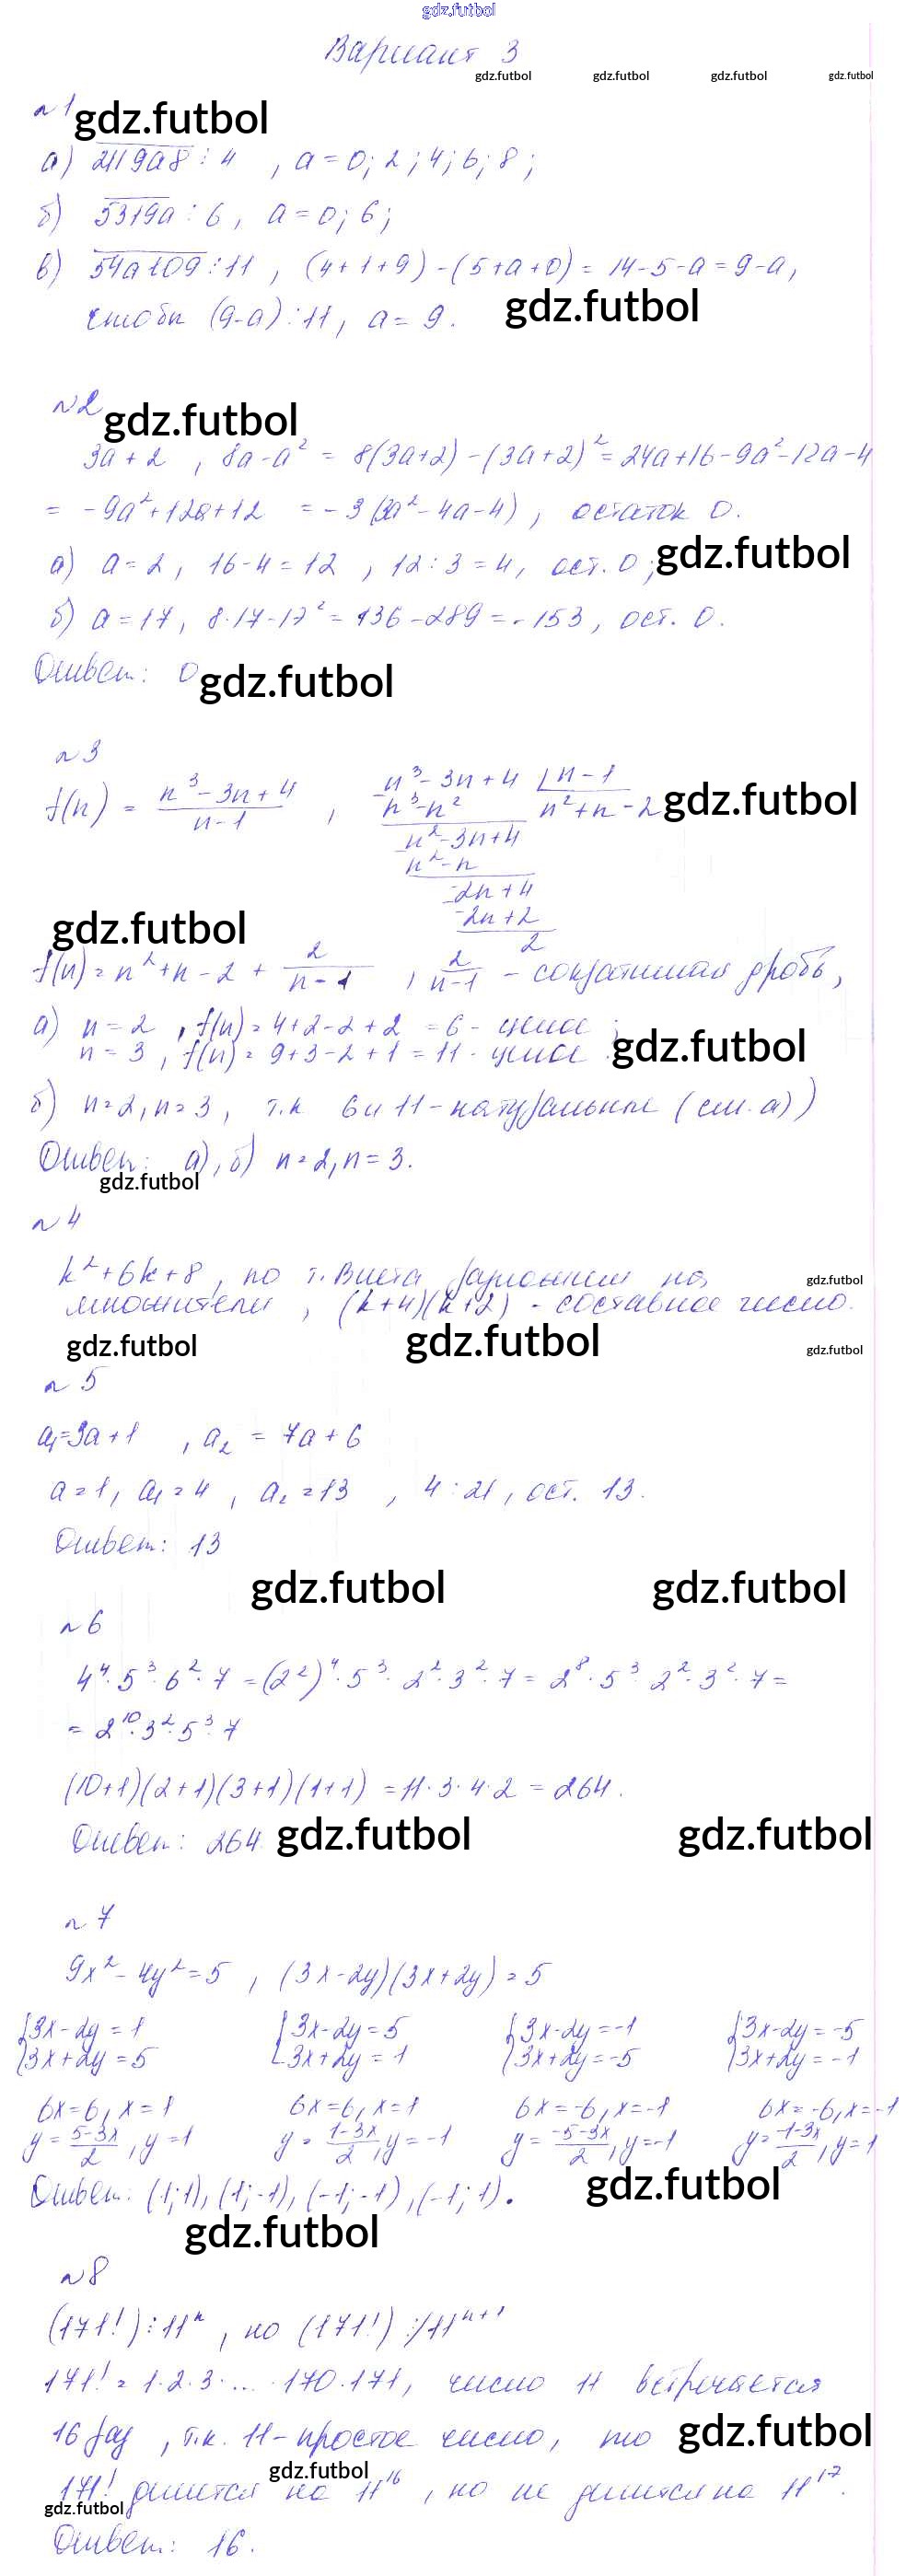 gdz.futbol
Вариант 3
gdz.futbol gdz.futbol gdz.futbol gdz.futbol
№1 gdz.futbol
а) 2119a8 ⋮ 4 , a = 0; 2; 4; 6; 8;
б) 5319a ⋮ 6, a = 0; 6;
в) 54a109 ⋮ 11, (4+1+9) - (5+a+0) = 14-5-a = 9-a,
чтобы (9-a) ⋮ 11, a = 9. gdz.futbol
№2 gdz.futbol
3a+2, 8a-a² = 8(3a+2)-(3a+2)² = 24a+16-9a²-12a-4
= -9a²+12a+12 = -3(3a²-4a-4), остаток 0.
а) a=2, 16-4=12, 12:3=4, ост. 0; gdz.futbol
б) a=17, 8·17-17² = 136-289 = -153, ост. 0.
Ответ: 0 gdz.futbol
№3
f(n) = (n³-3n+4)/(n-1) , n³-3n+4 | n-1
n³-n² n²+n-2 gdz.futbol
n²-3n+4
n²-n
-2n+4
gdz.futbol -2n+2
2
f(n) = n²+n-2 + 2/(n-1) , 2/(n-1) - сократимая дробь,
а) n=2, f(n) = 4+2-2+2 = 6 - целое ;
n=3, f(n) = 9+3-2+1 = 11 - целое gdz.futbol
б) n=2, n=3, т.к. 6 и 11 - натуральные (см. а))
Ответ: а), б) n=2, n=3.
gdz.futbol
№4
k²+6k+8, по т. Виета разложим на gdz.futbol
множители, (k+4)(k+2) - составное число.
gdz.futbol gdz.futbol gdz.futbol
№5
a₁=3a+1 , a₂ = 7a+6
a=1, a₁=4, a₂=13 , 4 : 21, ост. 13.
Ответ: 13
gdz.futbol gdz.futbol
№6
4⁴·5³·6²·7 = (2²)⁴·5³·2²·3²·7 = 2⁸·5³·2²·3²·7 =
= 2¹⁰·3²·5³·7
(10+1)(2+1)(3+1)(1+1) = 11·3·4·2 = 264.
Ответ: 264. gdz.futbol gdz.futbol
№7
9x²-4y²=5 , (3x-2y)(3x+2y)=5
{3x-2y=1 {3x-2y=5 {3x-2y=-1 {3x-2y=-5
{3x+2y=5 {3x+2y=1 {3x+2y=-5 {3x+2y=-1
6x=6, x=1 6x=6, x=1 6x=-6, x=-1 6x=-6, x=-1
y=(5-3x)/2, y=1 y=(1-3x)/2, y=-1 y=(-5-3x)/2, y=-1 y=(-1-3x)/2, y=1
Ответ: (1;1), (1;-1), (-1;-1), (-1;1). gdz.futbol
gdz.futbol
№8
(171!) ⋮ 11ⁿ, но (171!) ⋮̸ 11ⁿ⁺¹
171! = 1·2·3·...·170·171, число 11 встречается
16 раз, т.к. 11 - простое число, то gdz.futbol
gdz.futbol
171! делится на 11¹⁶, но не делится на 11¹⁷.
gdz.futbol
Ответ: 16.